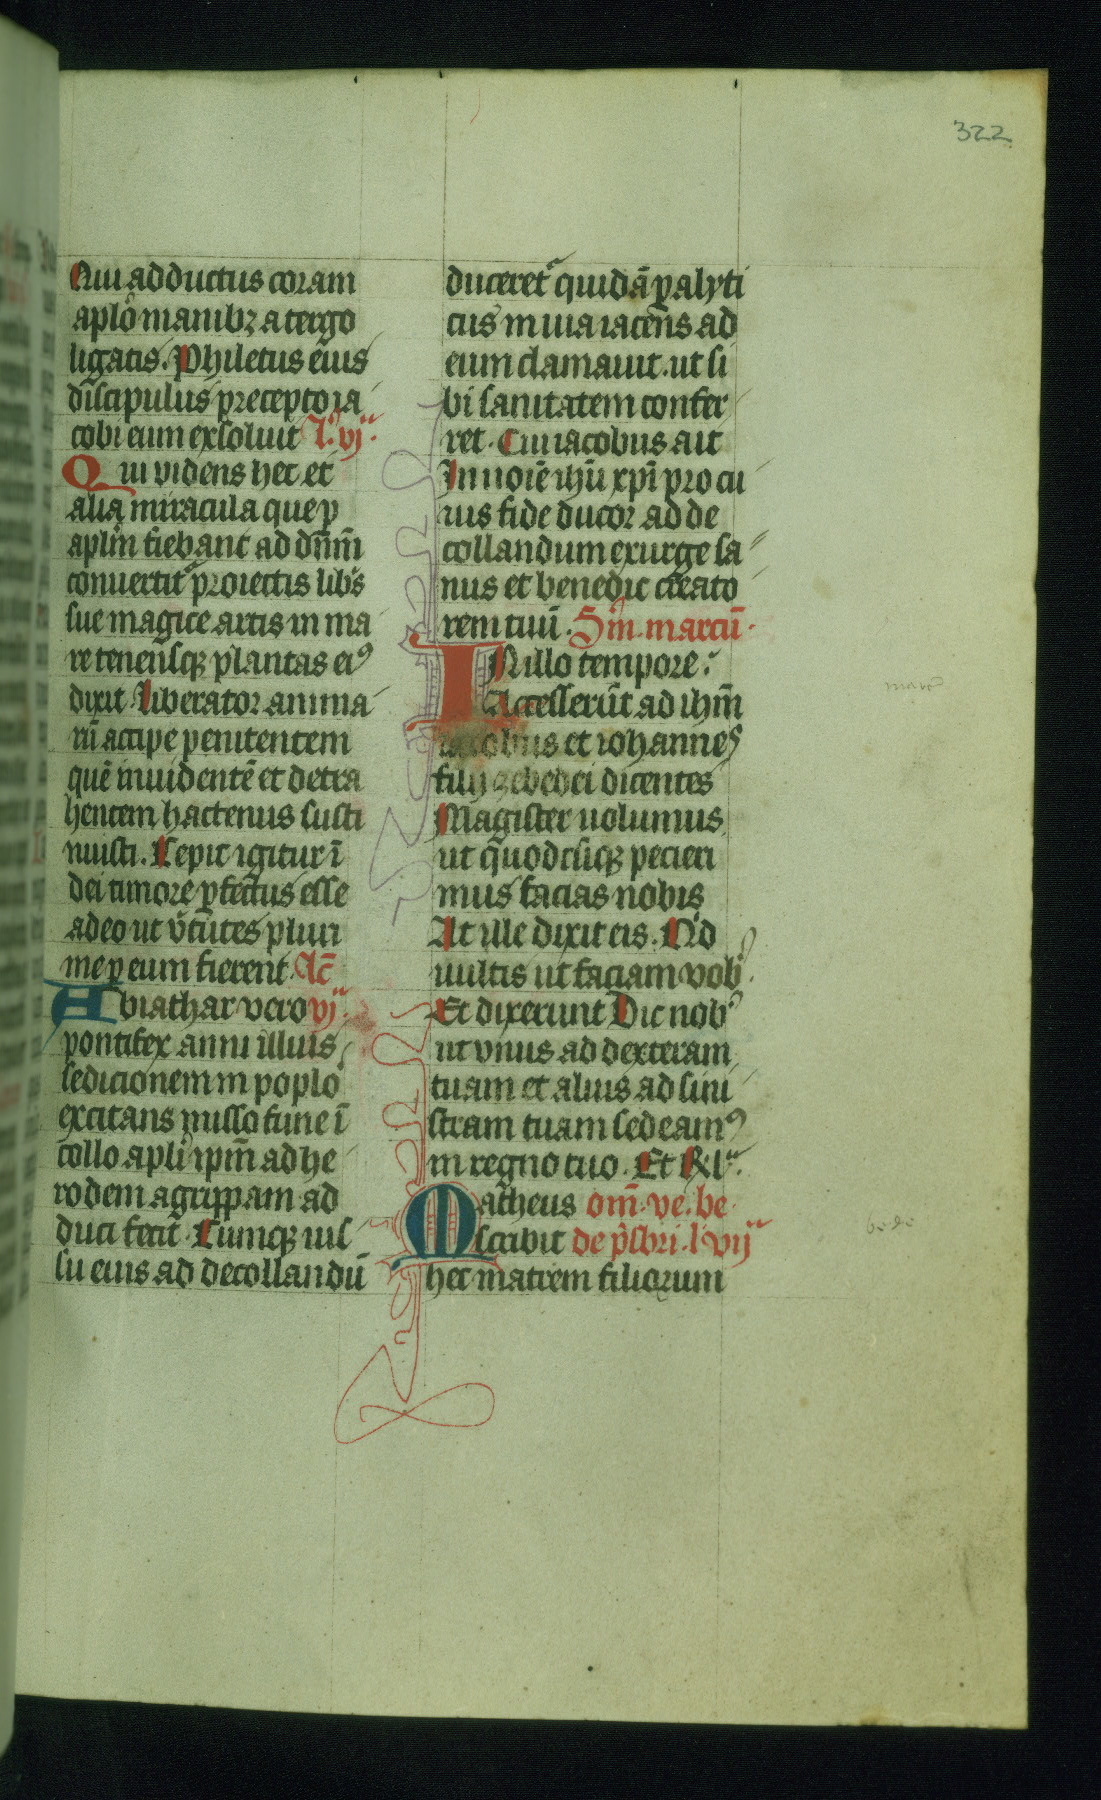 322
Qui adductus coram
aplo manibꝫ a tergo
ligatis. Philetus eius
discipulus precepto ia
cobi eum exsoluit l̓. vj.
Qui videns hec et
alia miracula que p
aplm fiebant ad dn̄m
conuertit᷑ proiectis libˢ
sue magice artis in ma
re tenensqꝫ plantas eiꝰ
dixit Liberator anima
rū accipe penitentem
quē inuidentē et detra
hentem hactenus susti
nuisti. Cepit igitur ī
dei timore ꝑfectus esse
adeo ut v̓tutes pluri
me ꝑ eum fierent. lc̄
Abiathar vero vj.
pontifex anni illius
sedicionem in poplo
excitans misso fune ī
collo apli ipm̄ ad he
rodem agrippam ad
duci fecit. Cumqꝫ ius
su eius ad decollandū
duceret᷑ quidā ꝑalyti
cus in uia iacens ad
eum clamauit. ut si
bi sanitatem confer
ret. Cui iacobus ait
In noīe ihū xp̄i pro cu
ius fide ducor ad de
collandum exurge sa
nus et benedic creato
rem tuū. Sm̄. marcū.
IN illo tempore.
Accesserūt ad ihm̄
iacobus et iohannes
filij zebedei dicentes
Magister uolumus
ut quodcūqꝫ pecieri
mus facias nobis
At ille dixit eis. Qid
uultis ut faciam vobˢ.
Et dixerunt Dic nobˢ
ut vnus ad dexteram
tuam et alius ad sini
stram tuam sedeamꝰ
in regno tuo. Et Rl̓.
Matheus om̄. ve. be.
scribit de p̓sbri. l̓. vij
hec matrem filiorum
marc
bede